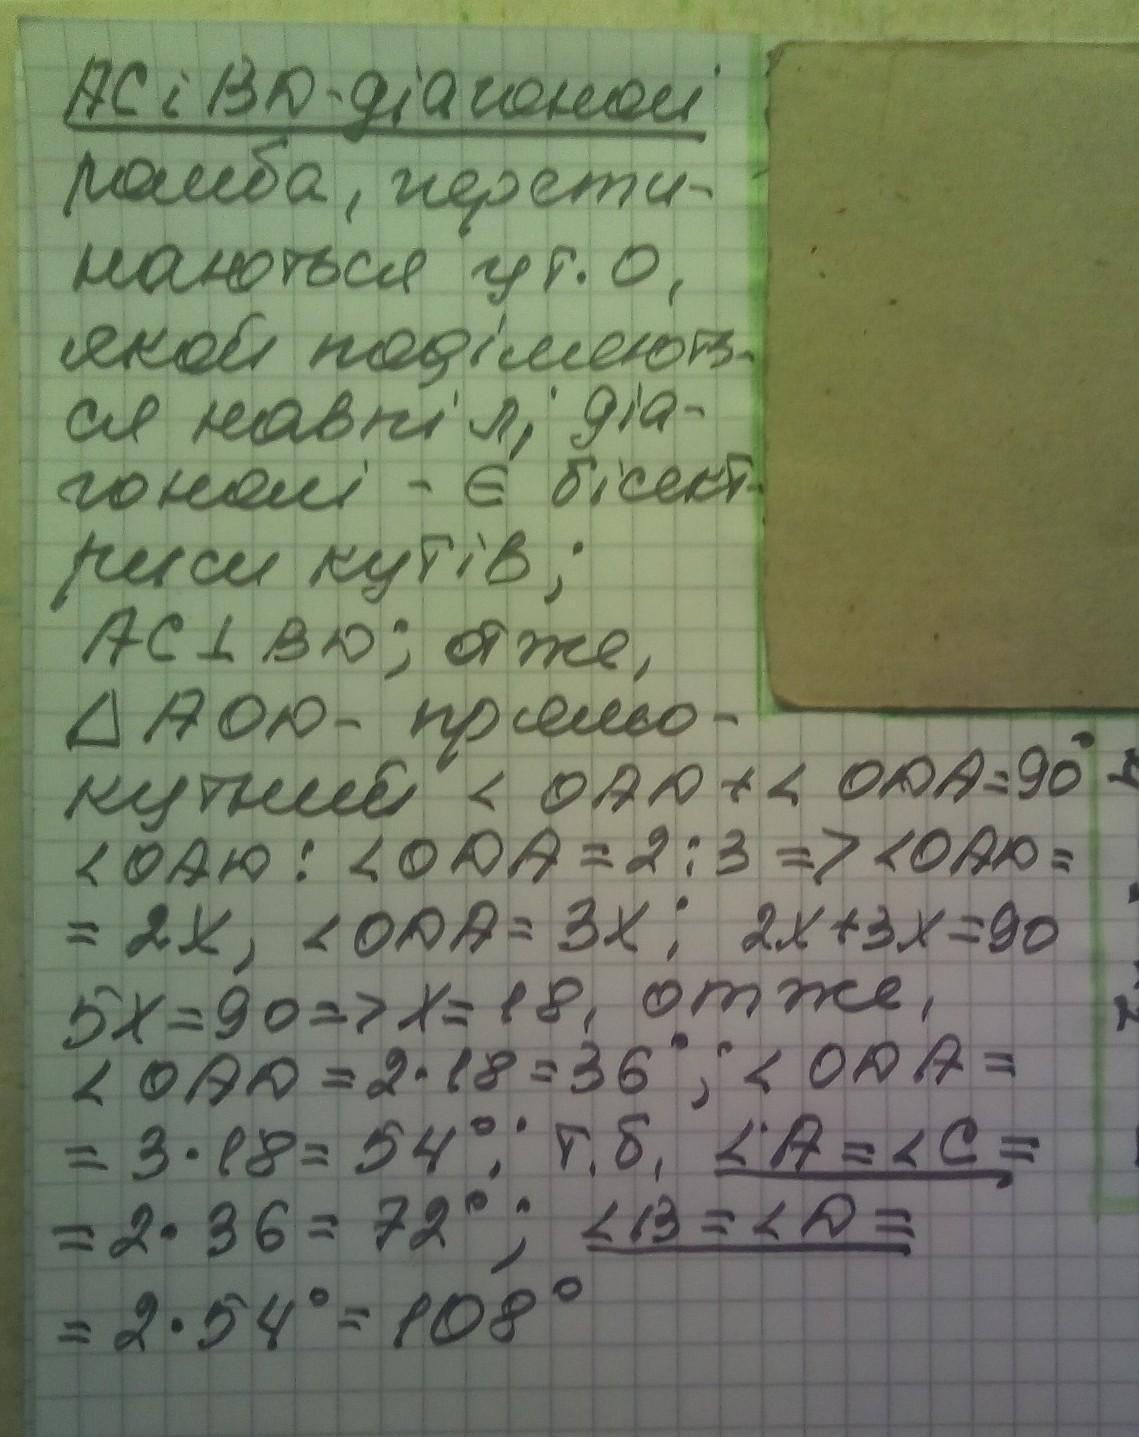 AC і BD - діагоналі
ромба, перети-
наються у т. O,
якою поділяють-
ся навпіл, діа-
гоналі - є бісект-
риси кутів;
AC⊥BD; отже,
△AOD - прямо-
кутний ∠OAD + ∠ODA = 90°
∠OAD : ∠ODA = 2 : 3 => ∠OAD =
= 2x, ∠ODA = 3x; 2x+3x=90
5x=90=>x=18, отже,
∠OAD = 2·18 = 36°; ∠ODA =
= 3·18 = 54°; т.б. ∠A = ∠C =
= 2·36 = 72°; ∠B = ∠D =
= 2·54° = 108°